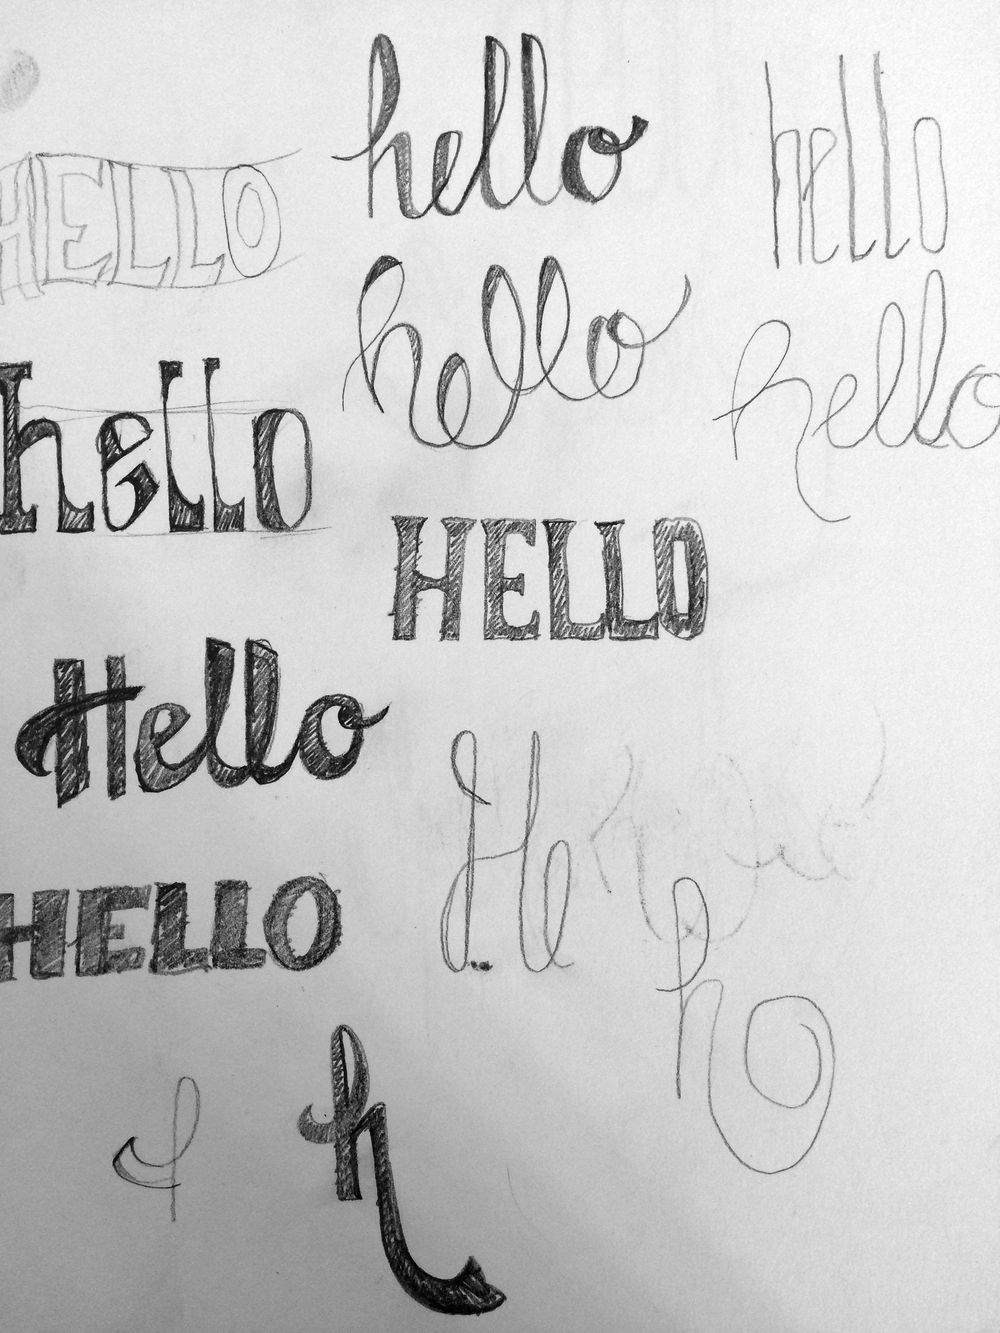 hello
hello
HELLO
hello
hello
hello
HELLO
Hello
He
HELLO
h
h